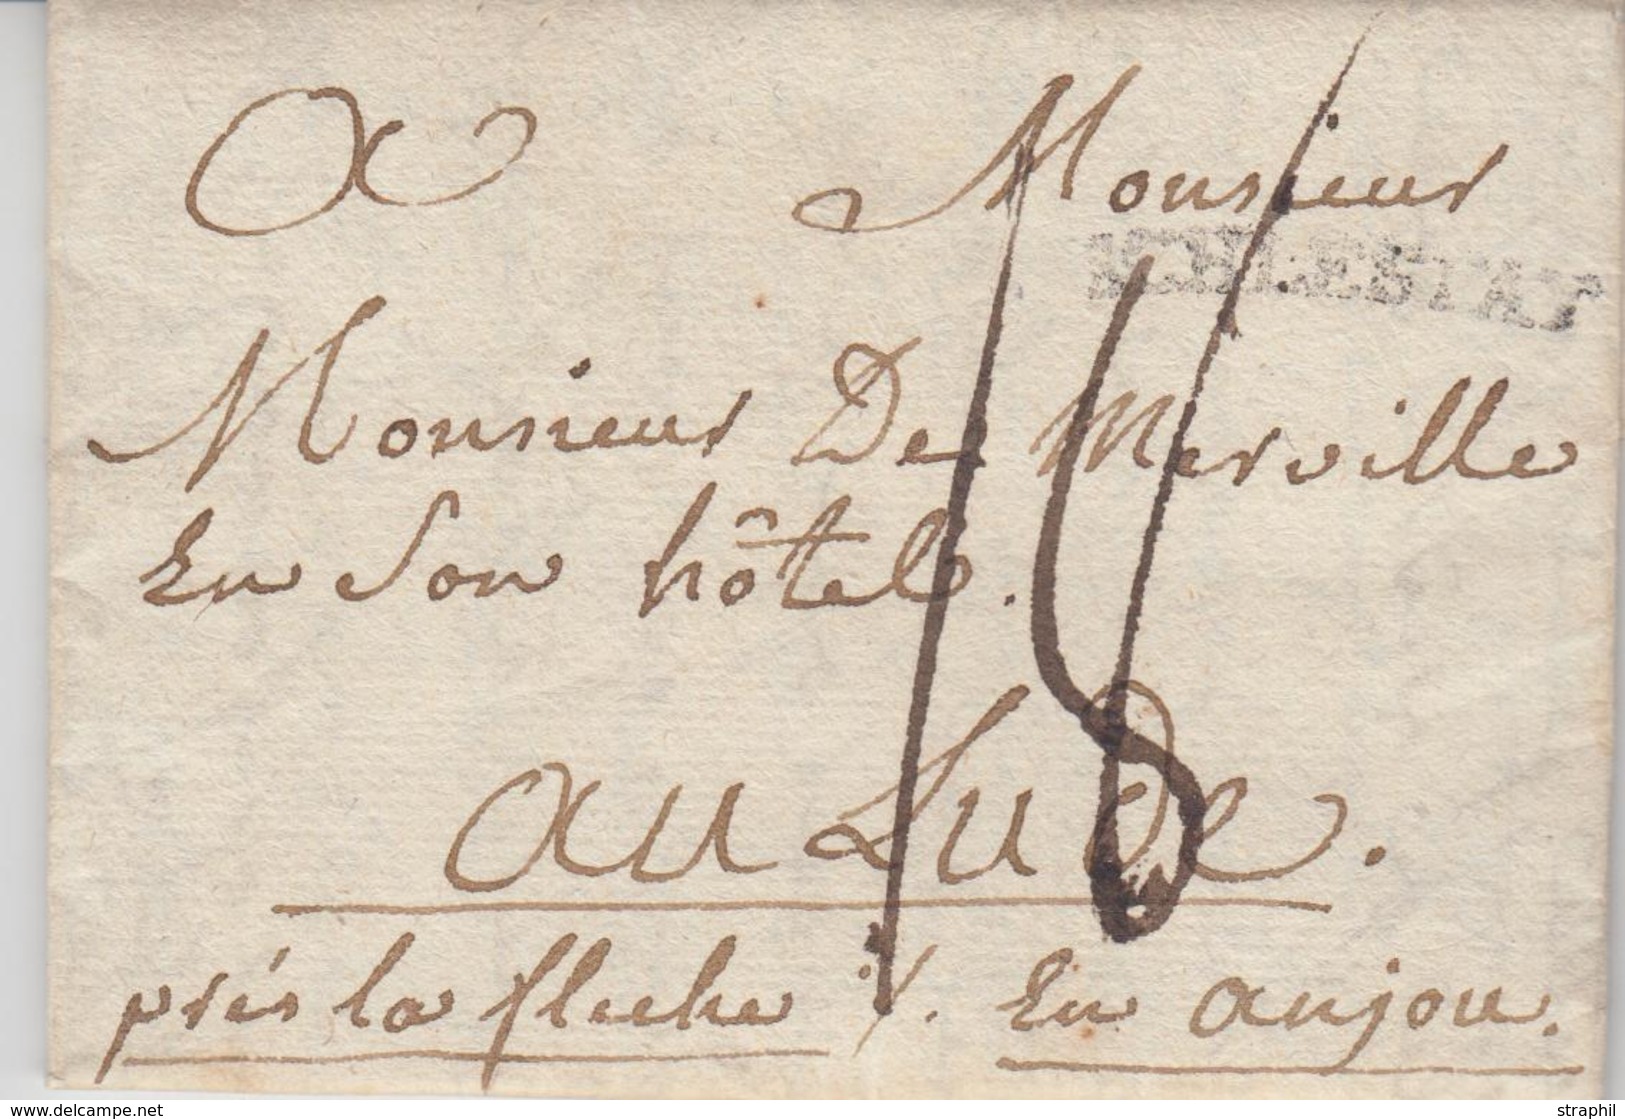 A Monsieur
SCHLESTAT
Monsieur De Merville
En Son hôtel.
18
au Lude.
prés la fleche %. En anjou.
www.delcampe.net
straphil